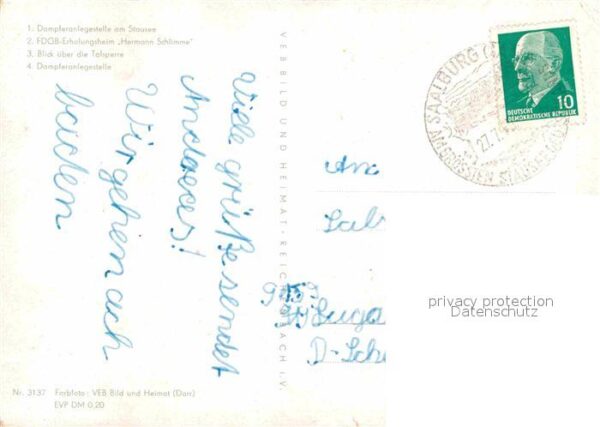 1. Dampferanlegestelle am Stausee
2. FDGB-Erholungsheim „Hermann Schlimme"
3. Blick über die Talsperre
4. Dampferanlegestelle
Viele grüße sendet
Andreas!
Wir gehen auch
baden
VEB BILD UND HEIMAT · REICHENBACH I. V.
SAALBURG
27.7.
AM GRÖSSTEN STAUSEE
DEUTSCHE
DEMOKRATISCHE REPUBLIK
10
An
D-Sch
privacy protection
Datenschutz
Nr. 3137 Farbfoto: VEB Bild und Heimat (Darr)
EVP DM 0,20